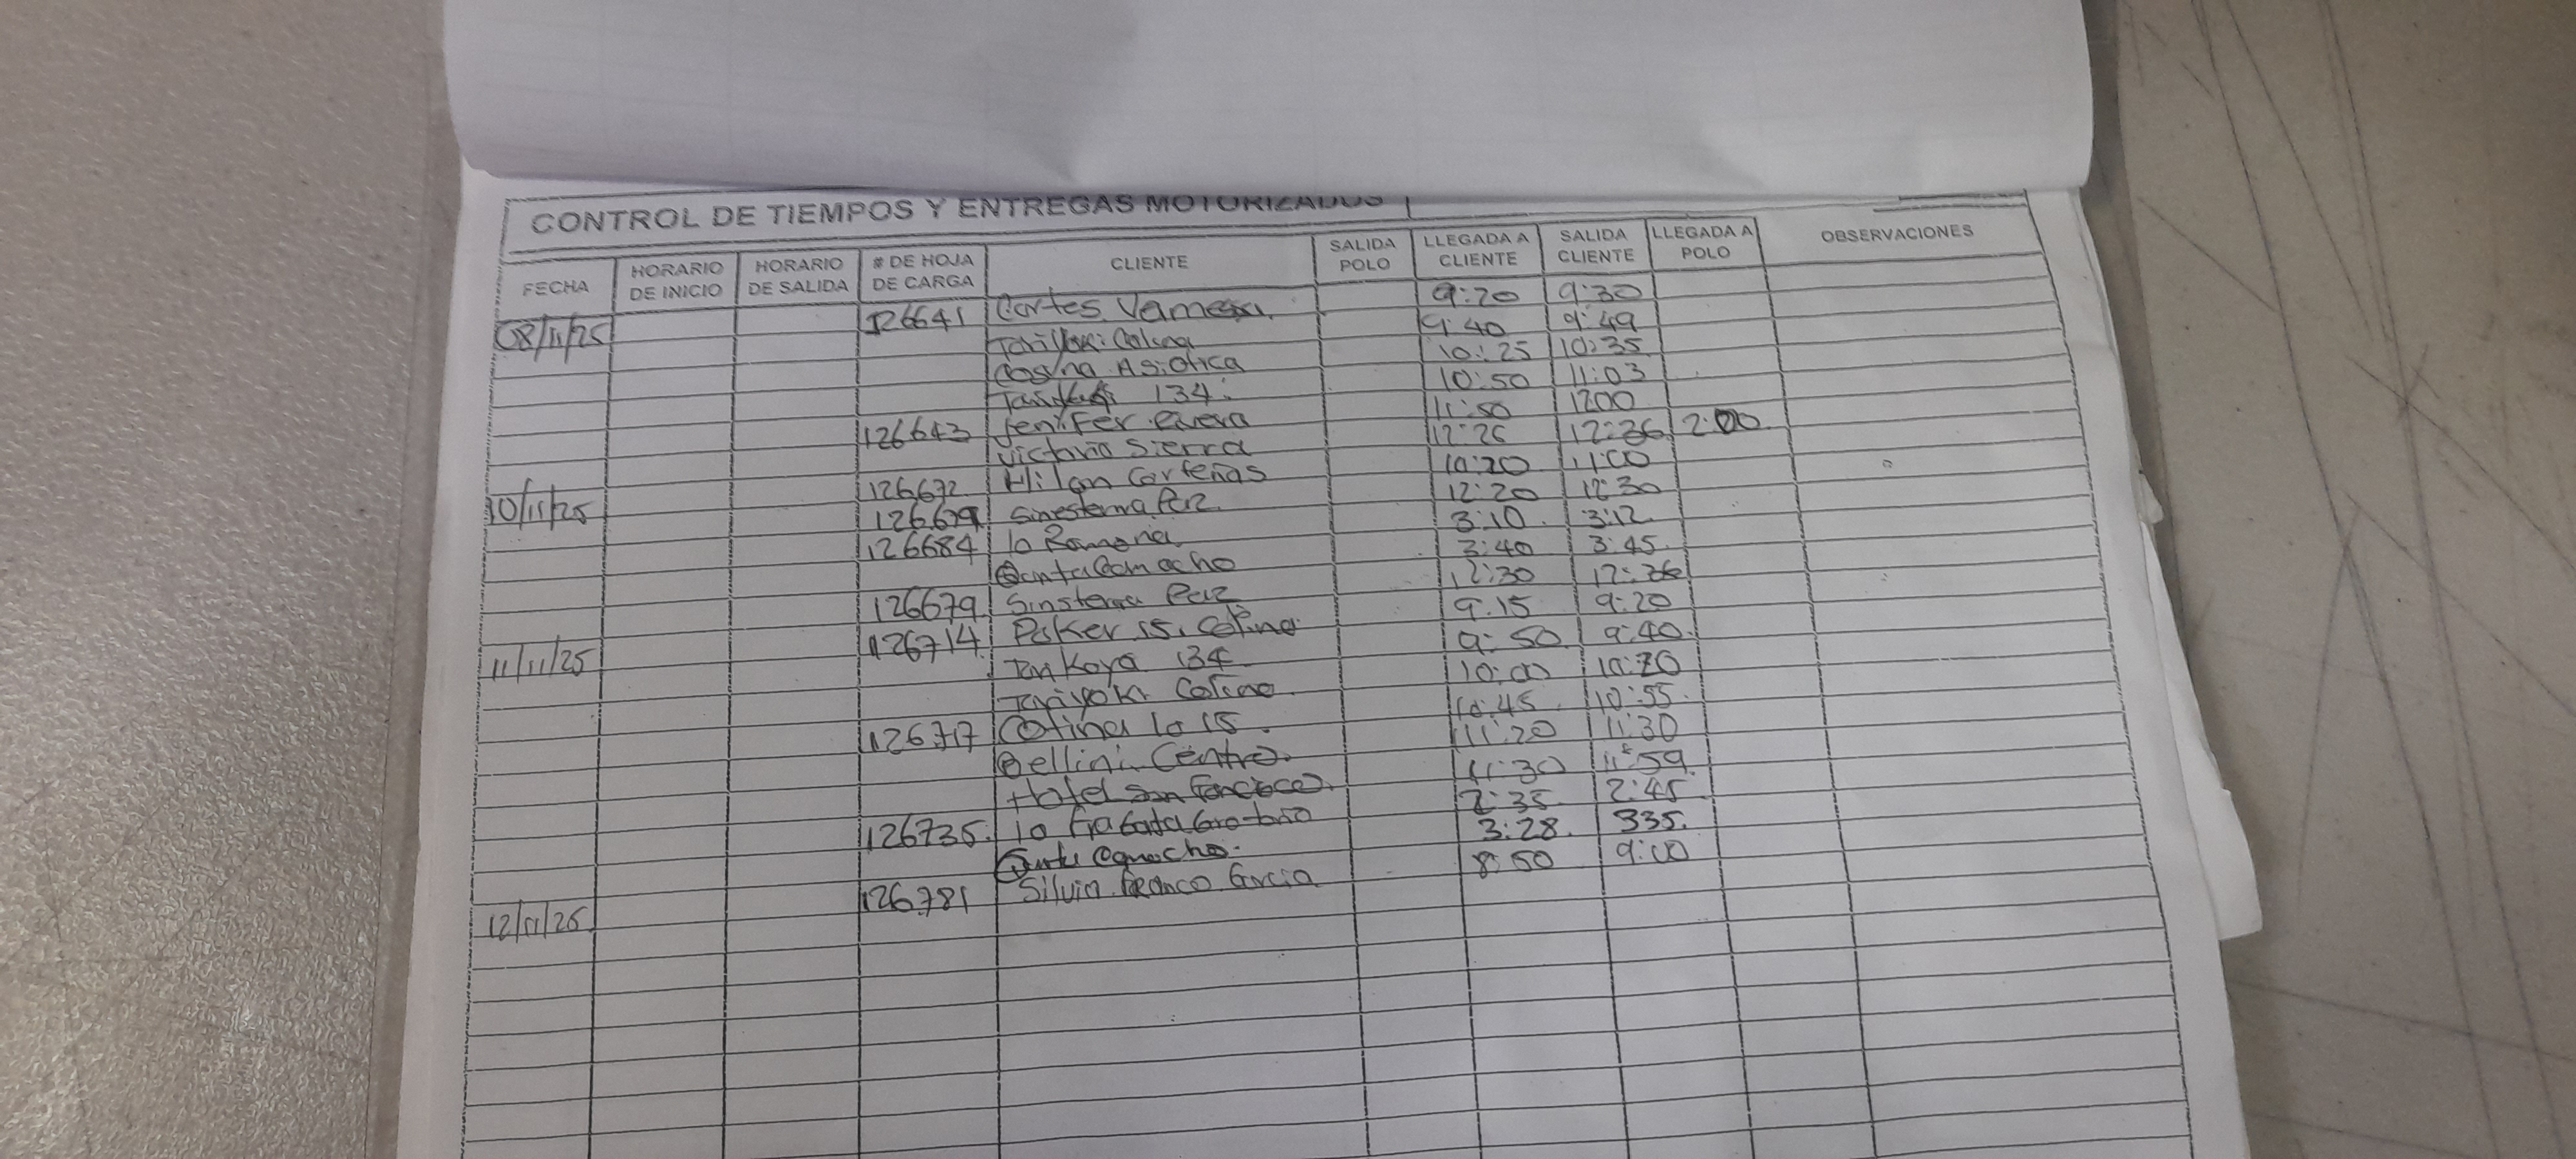 CONTROL DE TIEMPOS Y ENTREGAS MOTORIZADOS
FECHA HORARIO DE INICIO HORARIO DE SALIDA # DE HOJA DE CARGA CLIENTE SALIDA POLO LLEGADA A CLIENTE SALIDA CLIENTE LLEGADA A POLO OBSERVACIONES
08/11/25 126641 Cortes Vanessa. 9:20 9:30
Tariyoki Colina 9:40 9:49
Cosina Asiatica 10:25 10:35
134. 10:50 11:03
126643 Jenifer Rivera 11:50 1200
Victoria Sierra 12:26 12:36 2:00
10/11/25 126672 Hilan Carteñas 10:20 11:00
126679 Sinesterra Paz 12:20 12:30
126684 la Ramona 3:10 3:12
Camacho 3:40 3:45
126679 Sinsterra Paz 12:30 12:36
11/11/25 126714 Poker 15. Colina 9:15 9:20
Tankaya 134 9:50 9:40
Tariyoki Colina 10:00 10:20
126717 Cotina la 15. 10:45 10:55
Bellini Centro. 11:20 11:30
Hotel San Francisco. 11:30 11:59
126735. la Fragata 2:35 2:45
Camacho. 3:28. 335.
12/11/25 126781 Silvia Franco Garcia 8:50 9:00